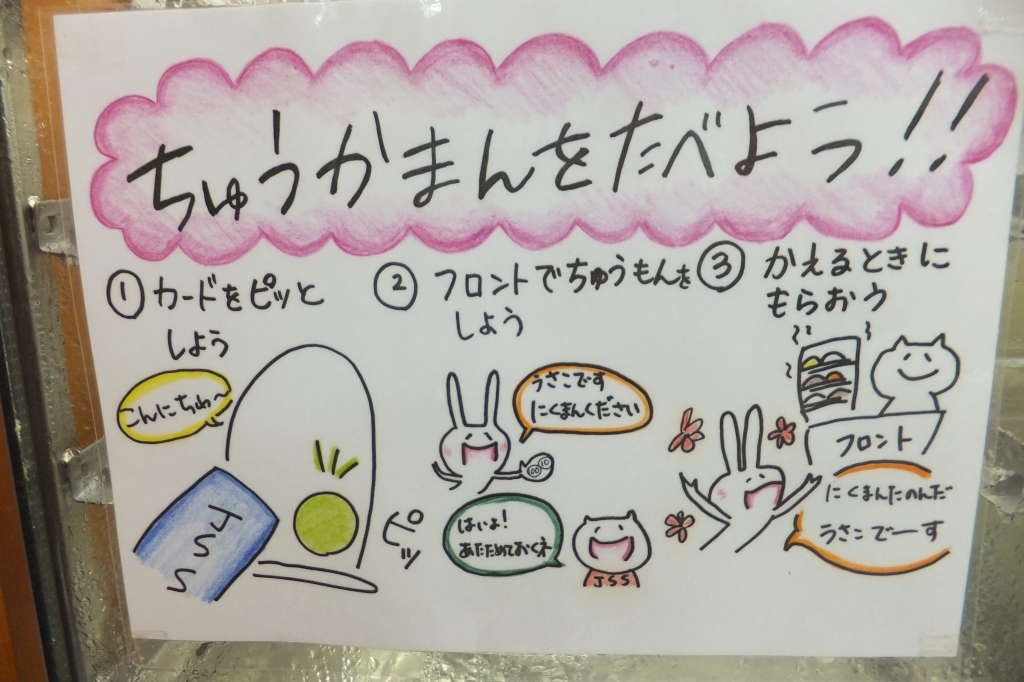 ちゅうかまんをたべよう!!
① カードをピッと
しよう
こんにちわ〜
JSS
ピッ
② フロントでちゅうもんを
しよう
うさこです
にくまんください
はいよ!
あたためておくネ
JSS
③ かえるときに
もらおう
フロント
にくまんたのんだ
うさこでーす